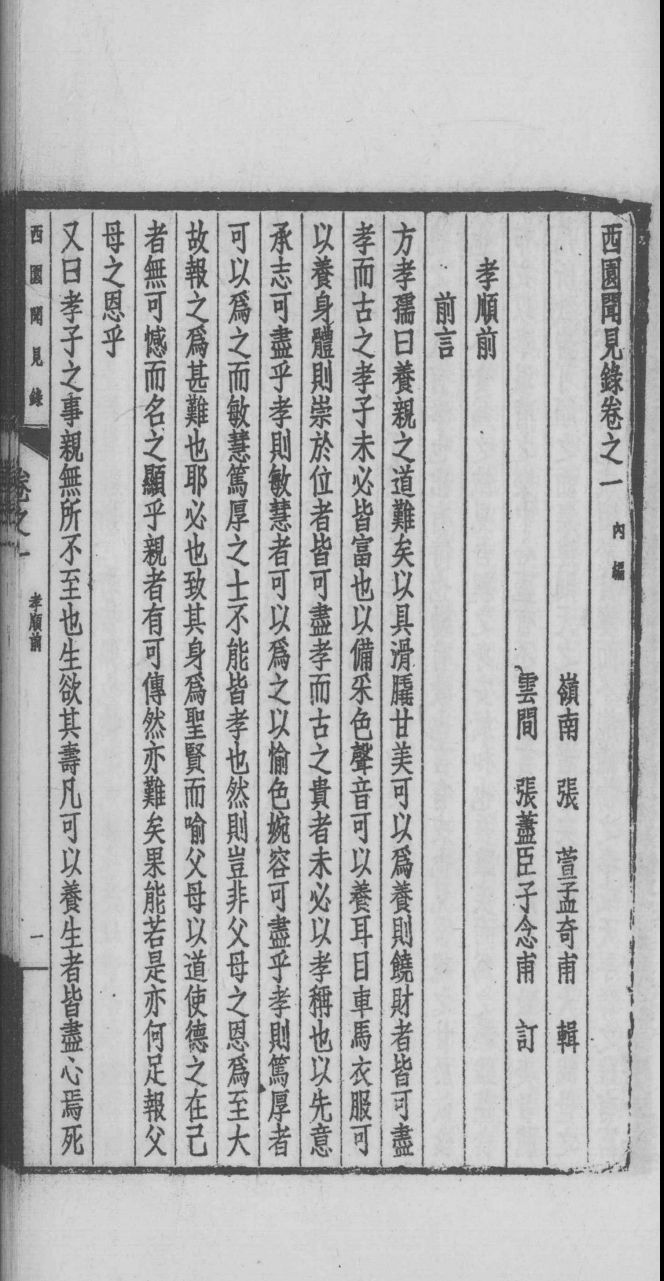 西園聞見錄卷之一 內編
嶺南 張 萱孟奇甫 輯
雲間 張藎臣子念甫 訂
孝順前
前言
方孝孺曰養親之道難矣以具滑膬甘美可以爲養則饒財者皆可盡
孝而古之孝子未必皆富也以備采色聲音可以養耳目車馬衣服可
以養身體則崇於位者皆可盡孝而古之貴者未必以孝稱也以先意
承志可盡乎孝則敏慧者可以爲之以愉色婉容可盡乎孝則篤厚者
可以爲之而敏慧篤厚之士不能皆孝也然則豈非父母之恩爲至大
故報之爲甚難也耶必也致其身爲聖賢而喻父母以道使德之在己
者無可憾而名之顯乎親者有可傳然亦難矣果能若是亦何足報父
母之恩乎
又曰孝子之事親無所不至也生欲其壽凡可以養生者皆盡心焉死
西園聞見錄 卷之一 孝順前 一